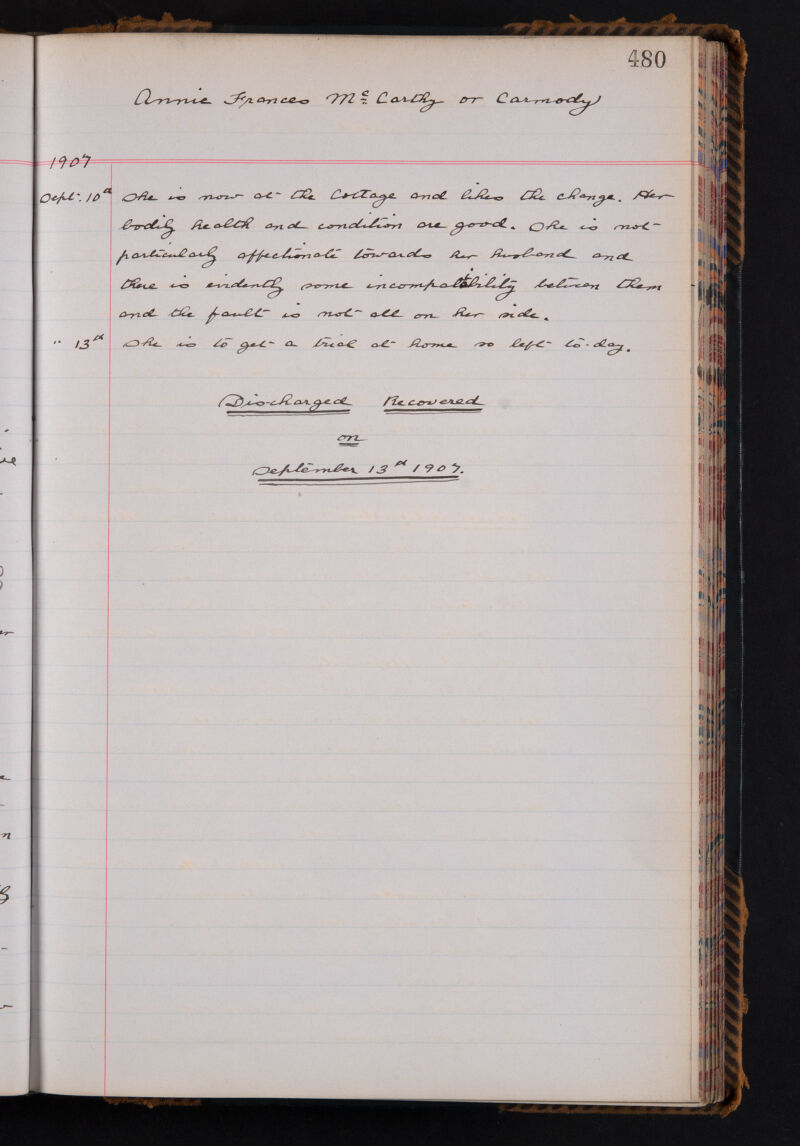 480
Annie Frances Mc Carthy or Carmody
1907
Sept. 10th She is now at the Cottage and likes the change. Her
bodily health and condition are good. She is not
particularly affectionate towards her husband and
there is evidently some incompatibility between them
and the fault is not all on her side.
" 13th She is to get a trial at home so left to-day.
Discharged Recovered
on
September 13th 1907.